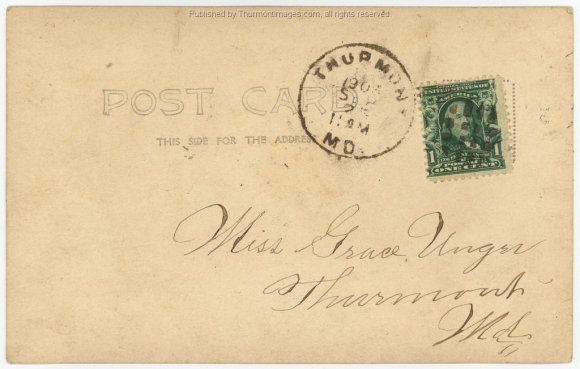 Published by Thurmontimages.com, all rights reserved.
POST CARD
THIS SIDE FOR THE ADDRESS
THURMONT
11 AM
MD.
UNITED STATES OF AMERICA
1 1
POSTAGE
ONE CENT
Miss Grace Unger
Thurmont
Md.